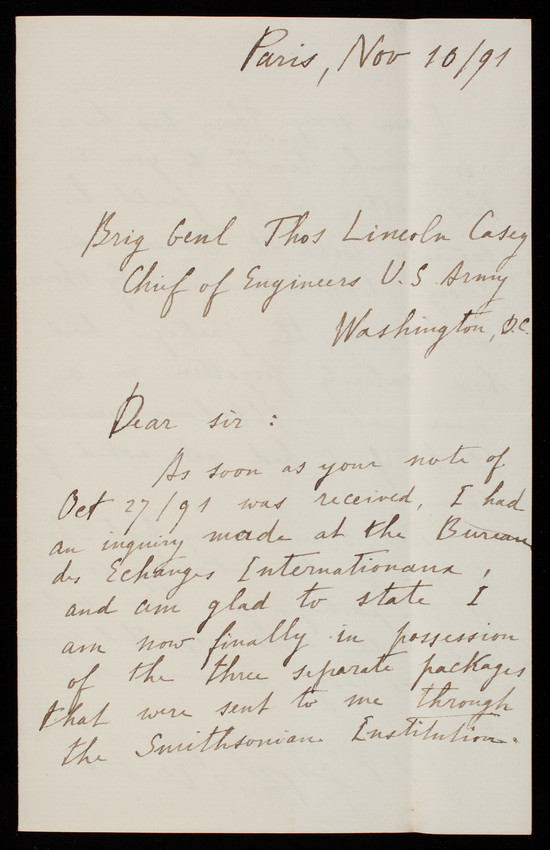 Paris, Nov 10/91
Brig Genl Thos Lincoln Casey
Chief of Engineers U.S Army
Washington, D.C.
Dear sir :
As soon as your note of
Oct 27/91 was received, I had
an inquiry made at the Bureau
des Echanges Internationaux,
and am glad to state I
am now finally in possession
of the three separate packages
that were sent to me through
the Smithsonian Institution.